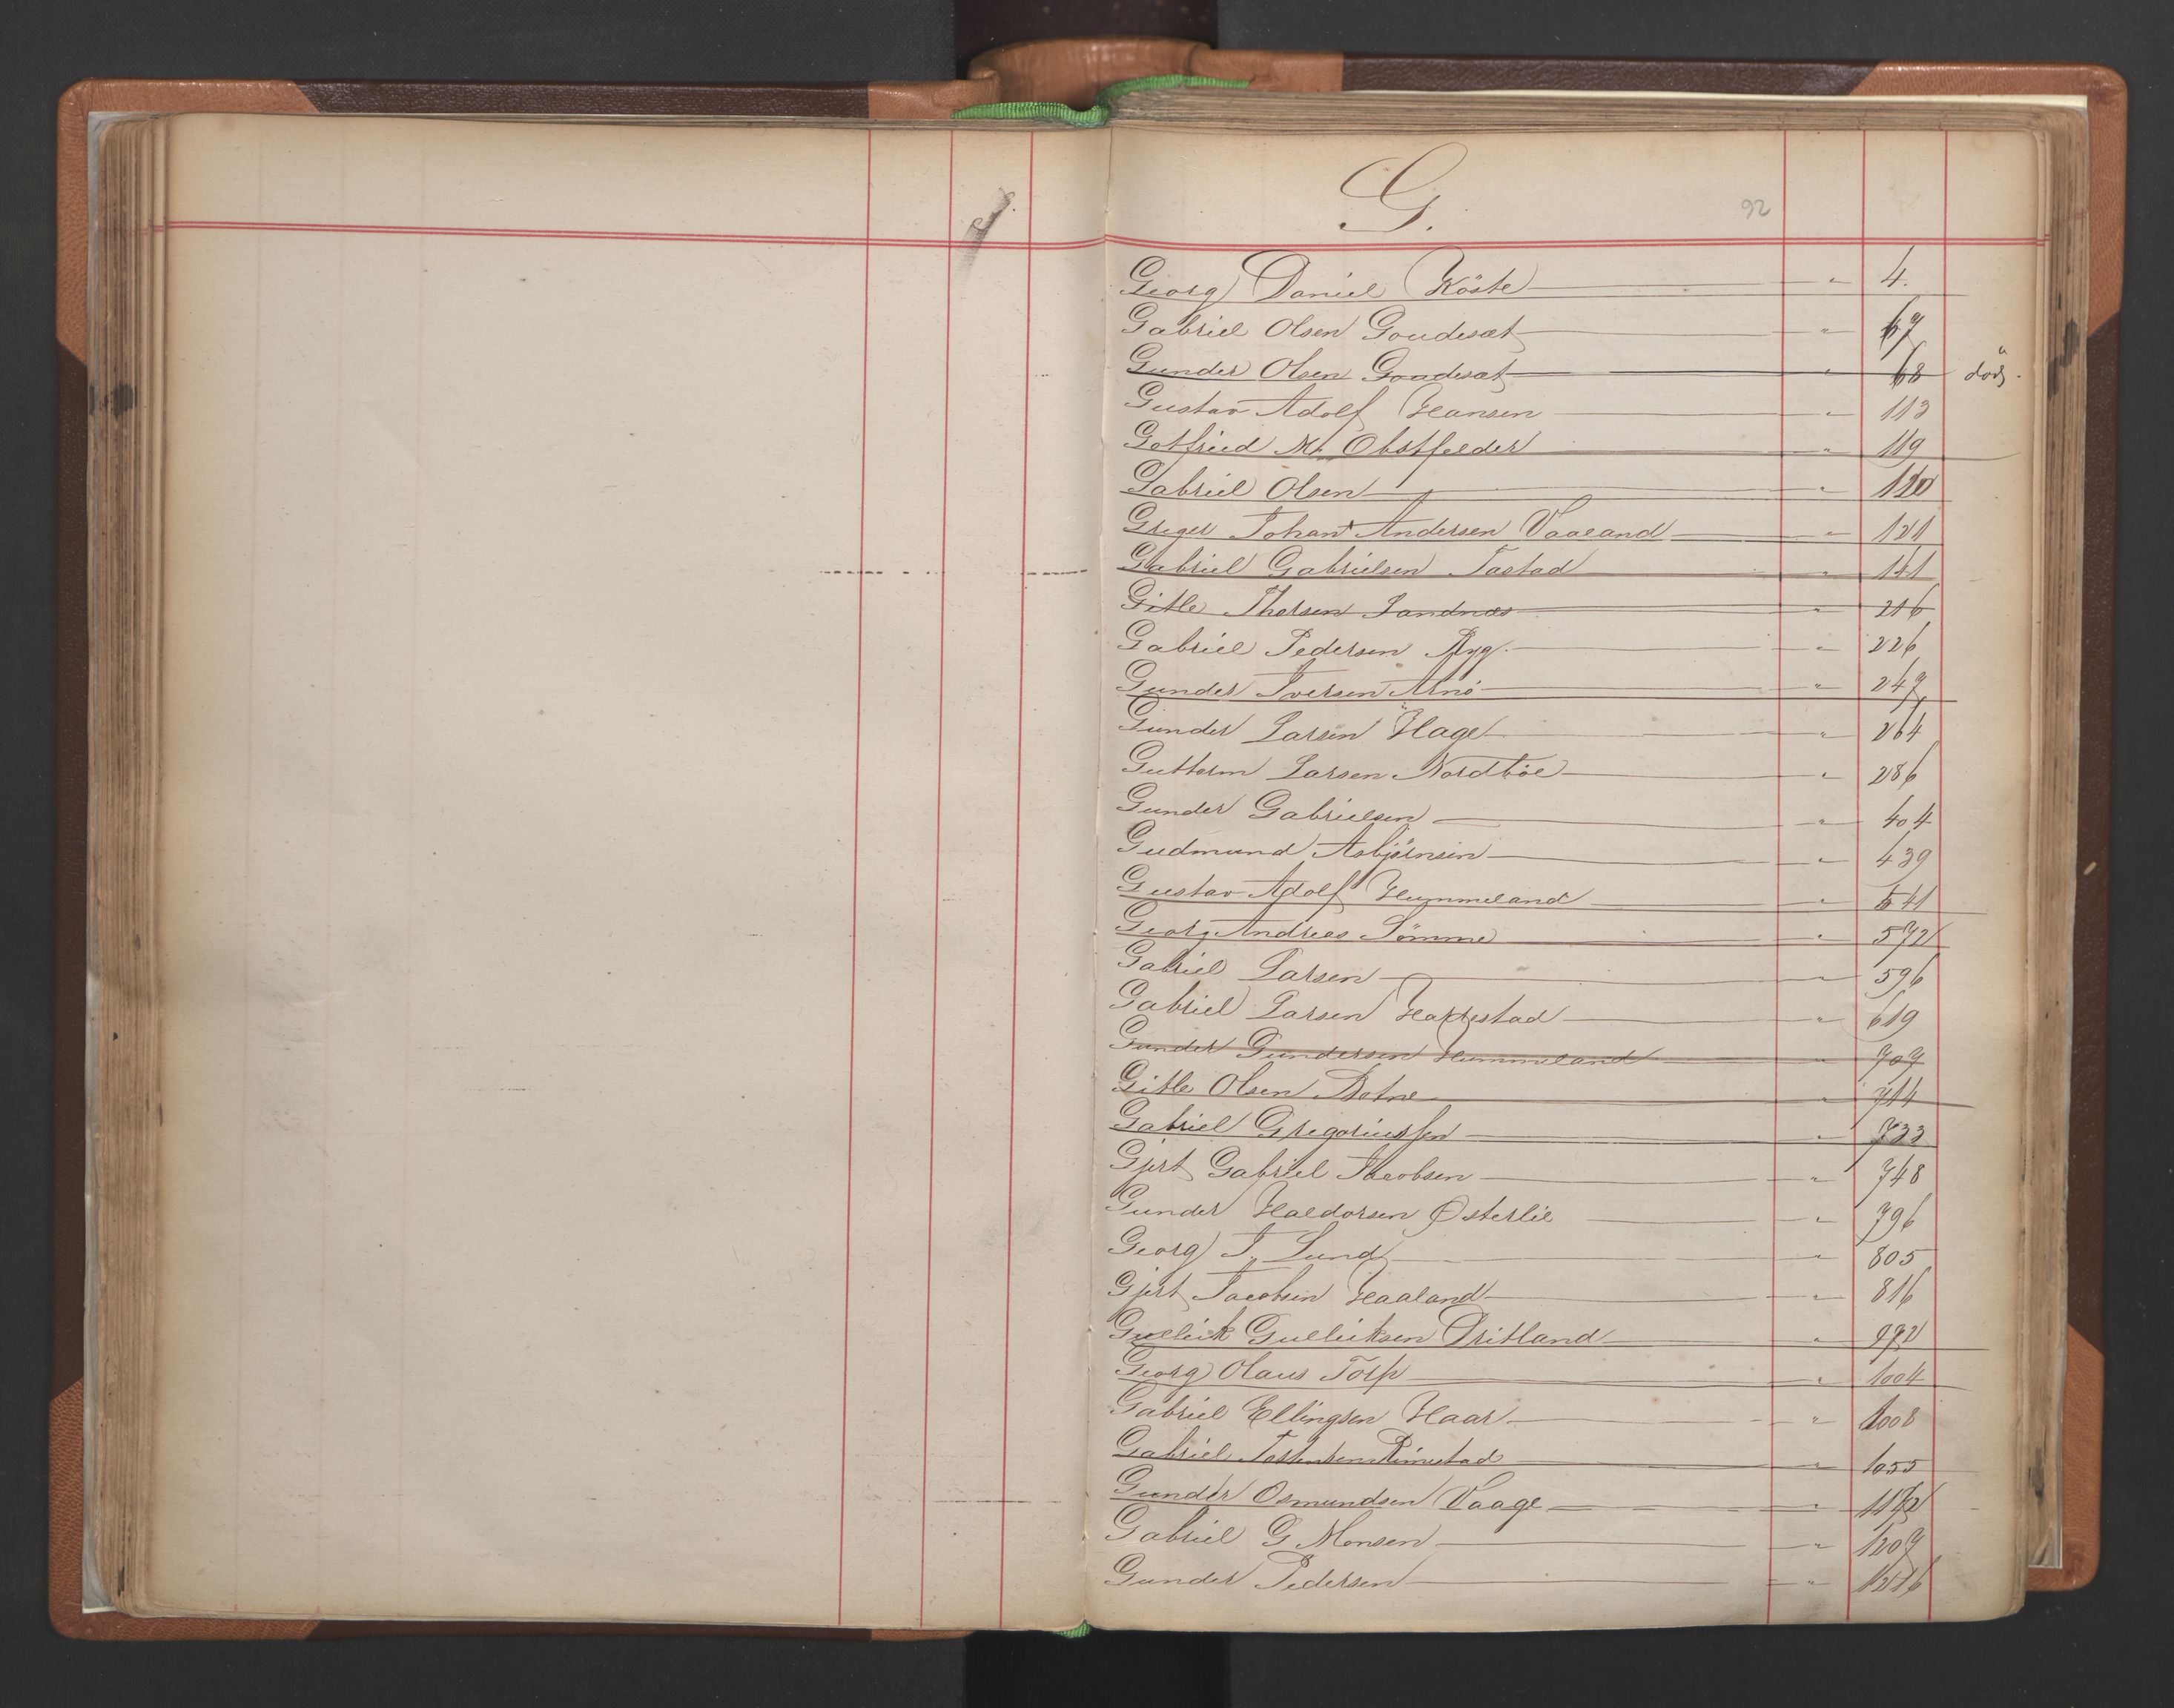 G.
92
Georg Daniel Köste — " — 4.
Gabriel Olsen Goudesæt — " — 67
Gunder Olsen Goudesæt — " — 68 död.
Gustav Adolf Hansen — " — 113
Gotfried M. Obstfelder — " — 119
Gabriel Olsen — " — 120
Greger Johan Andersen Vaaland — " — 121
Gabriel Gabrielsen Tastad — " — 141
Gitle Thorsen Sandnæs — " — 216
Gabriel Pedersen Ryg. — " — 226
Gunder Iversen Arnö — " — 247
Gunder Larsen Hage — " — 264
Guttorm Larsen Nordböe — " — 286
Gunder Gabrielsen — " — 404
Gudmund Asbjörnsen — " — 439
Gustav Adolf Hummeland — " — 541
Georg Andreas Sömme — " — 572
Gabriel Larsen — " — 596
Gabriel Larsen Harrestad — " — 619
Gunder Gundersen Hummeland — " — 707
Gitle Olsen Botne — " — 714
Gabriel Gregoriussen — " — 733
Gjert Gabriel Jacobsen — " — 748
Gunder Haldorsen Østerlie — " — 796
Georg J. Lund — " — 805
Gjert Jacobsen Haaland — " — 816
Gullick Gulleiksen Tritland — " — 992
Georg Olaus Torp — " — 1004
Gabriel Ellingsen Haar — " — 1008
Gabriel Tostensen Rimestad — " — 1055
Gunder Osmundsen Vaage — " — 1172
Gabriel G Monsen — " — 1207
Gunder Pedersen — " — 1216